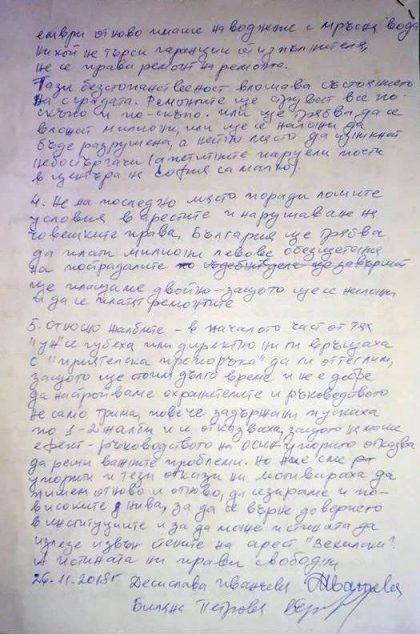 ември отново имаше наводнение с мръсна вода
никой не търси гаранции от изпълнителя,
не се прави ремонт на ремонта.
Тази безстопанственост влошава състоянието
на сградата. Ремонтите ще струват все по-
скъпо и по-скъпо. Или ще трябва да се
вложат милиони, или ще се наложи да
бъде разрушена, а на това място да изникнат
небостъргачи (апетитните парцели почти
в центъра на София са малко).
4. Не на последно място поради лошите
условия в арестите и нарушаване на
човешките права, България ще трябва
да плати милиони левове обезщетения
на пострадалите
ще плащаме двойно - защото ще се наложи
и да се платят ремонтите
5. Относно жалбите - в началото част от тях
"уж" се губеха или директно ни ги връщаха
с "приятелска препоръка" да ги оттеглим,
защото ще стоим дълго време и не е добре
да настройваме охранителите и ръководството
не само трима, повече задържани пускаха
по 1-2 жалби и се отказваха, защото нямаше
ефект - ръководството на упорито отказва
да реши важните проблеми. Но ние сме
упорити и тези откази ни мотивираха да
пишем отново и отново, да сезираме и по-
високите нива, за да се върне доверието
в институциите и за да може истината да
излезе извън стените на арест
А истината ни прави свободни
26.11.2018г Десислава Иванчева
Биляна Петрова